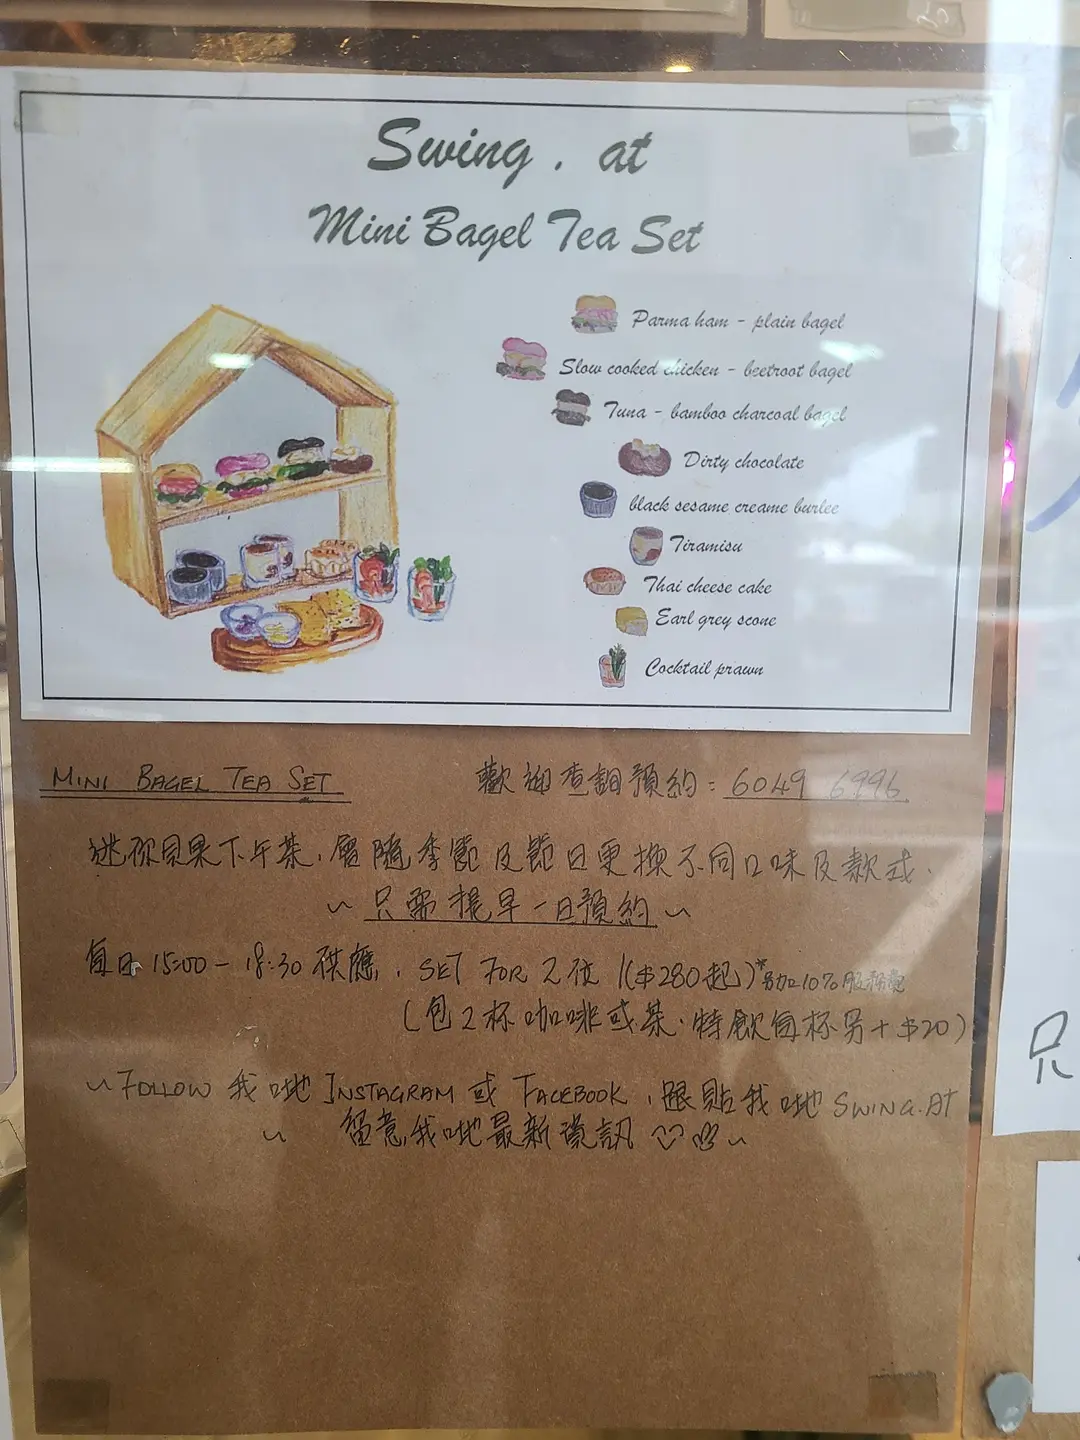 Swing . at
Mini Bagel Tea Set
Parma ham - plain bagel
Slow cooked chicken - beetroot bagel
Tuna - bamboo charcoal bagel
Dirty chocolate
black sesame creame burlee
Tiramisu
Thai cheese cake
Earl grey scone
Cocktail prawn
MINI BAGEL TEA SET 歡迎查詢預約: 6049 6996
迷你貝果下午茶, 會隨季節及節日更換不同口味及款式.
~ 只需提早一日預約 ~
每日 15:00 - 18:30 供應, SET FOR 2 位 ($280起) *另加10%服務費
(包2杯咖啡或茶. 特飲每杯另+$20)
~ FOLLOW 我哋 INSTAGRAM 或 FACEBOOK, 跟貼我哋 SWING.AT
~ 留意我哋最新資訊 ~
只